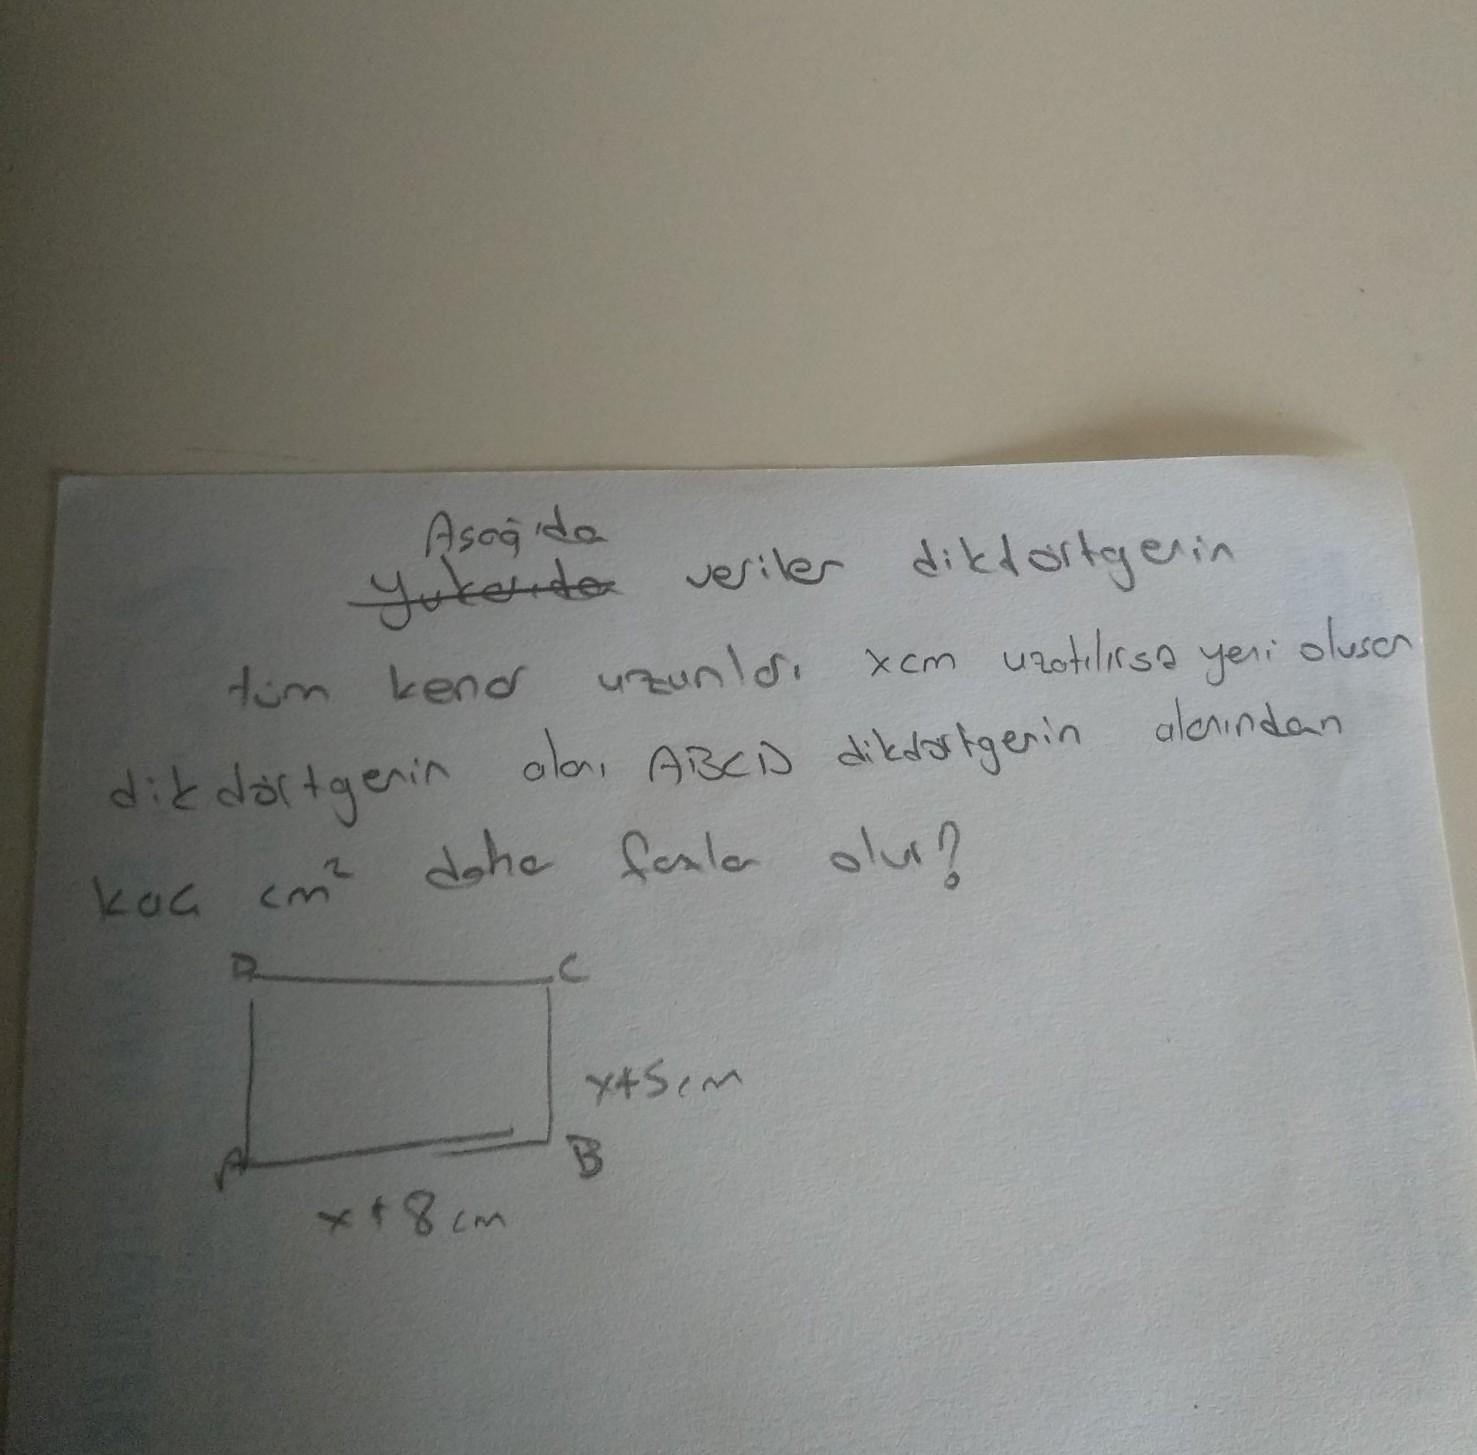 Aşağıda
Yukarıda verilen dikdörtgenin
tüm kenar uzunları xcm uzatılırsa yeni oluşan
dikdörtgenin alanı ABCD dikdörtgenin alanından
kaç cm² daha fazla olur?
D C
x+5cm
A B
x+8cm